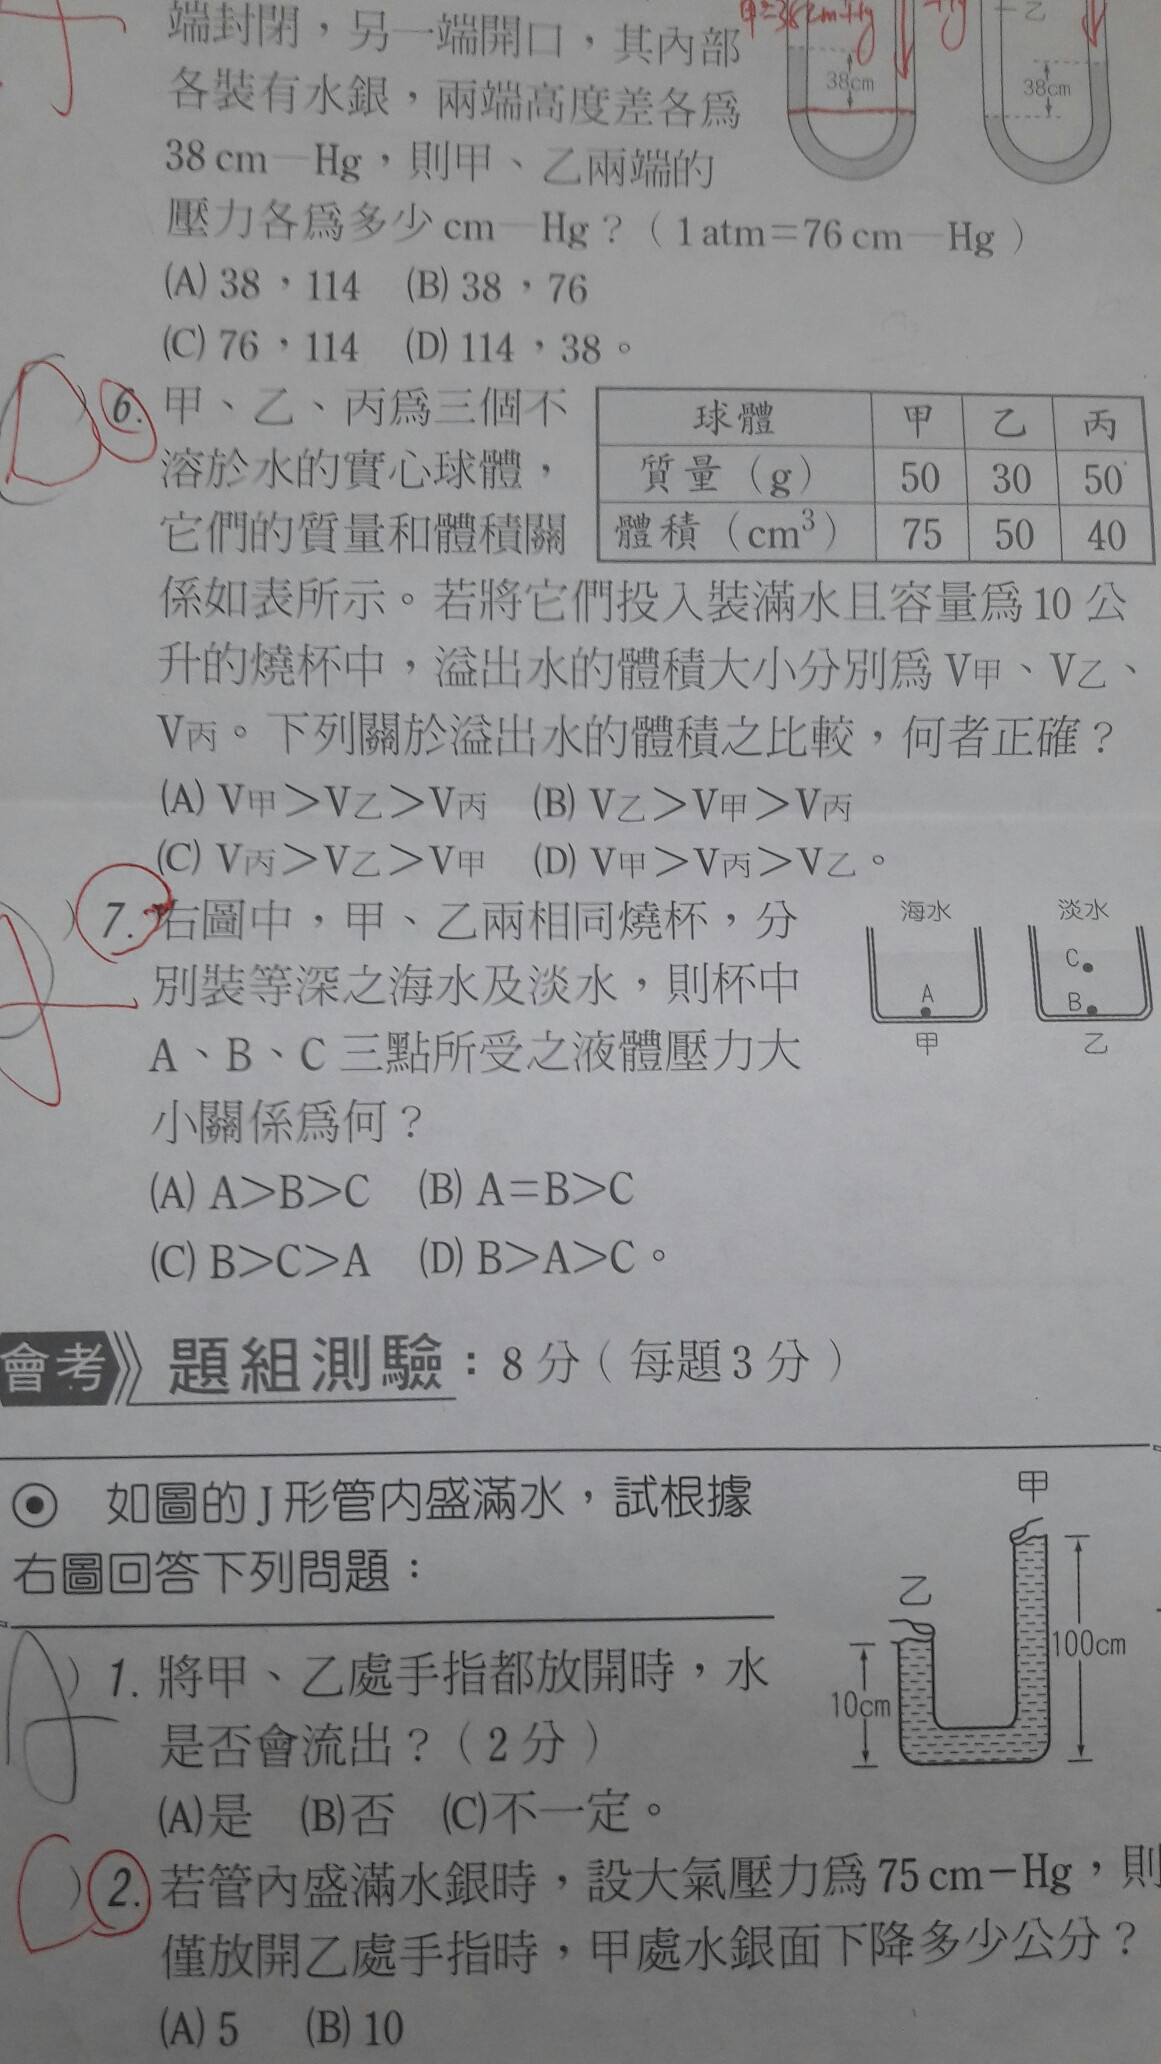 端封閉，另一端開口，其內部
各裝有水銀，兩端高度差各為
38 cm－Hg，則甲、乙兩端的
壓力各為多少 cm－Hg？（1 atm＝76 cm－Hg）
(A) 38，114　(B) 38，76
(C) 76，114　(D) 114，38。
乙
38cm
38cm
D
) 6. 甲、乙、丙為三個不
溶於水的實心球體，
它們的質量和體積關
球體 甲 乙 丙
質量（g） 50 30 50
體積（cm³） 75 50 40
係如表所示。若將它們投入裝滿水且容量為 10 公
升的燒杯中，溢出水的體積大小分別為 V甲、V乙、
V丙。下列關於溢出水的體積之比較，何者正確？
(A) V甲＞V乙＞V丙　(B) V乙＞V甲＞V丙
(C) V丙＞V乙＞V甲　(D) V甲＞V丙＞V乙。
A
) 7. 右圖中，甲、乙兩相同燒杯，分
別裝等深之海水及淡水，則杯中
A、B、C 三點所受之液體壓力大
小關係為何？
海水 淡水
A
C
B
甲 乙
(A) A＞B＞C　(B) A＝B＞C
(C) B＞C＞A　(D) B＞A＞C。
會考 題組測驗：8 分（每題 3 分）
⊙ 如圖的 J 形管內盛滿水，試根據
右圖回答下列問題：
甲
乙
100cm
10cm
A
) 1. 將甲、乙處手指都放開時，水
是否會流出？（2 分）
(A)是　(B)否　(C)不一定。
C
) 2. 若管內盛滿水銀時，設大氣壓力為 75 cm－Hg，則
僅放開乙處手指時，甲處水銀面下降多少公分？
(A) 5　(B) 10